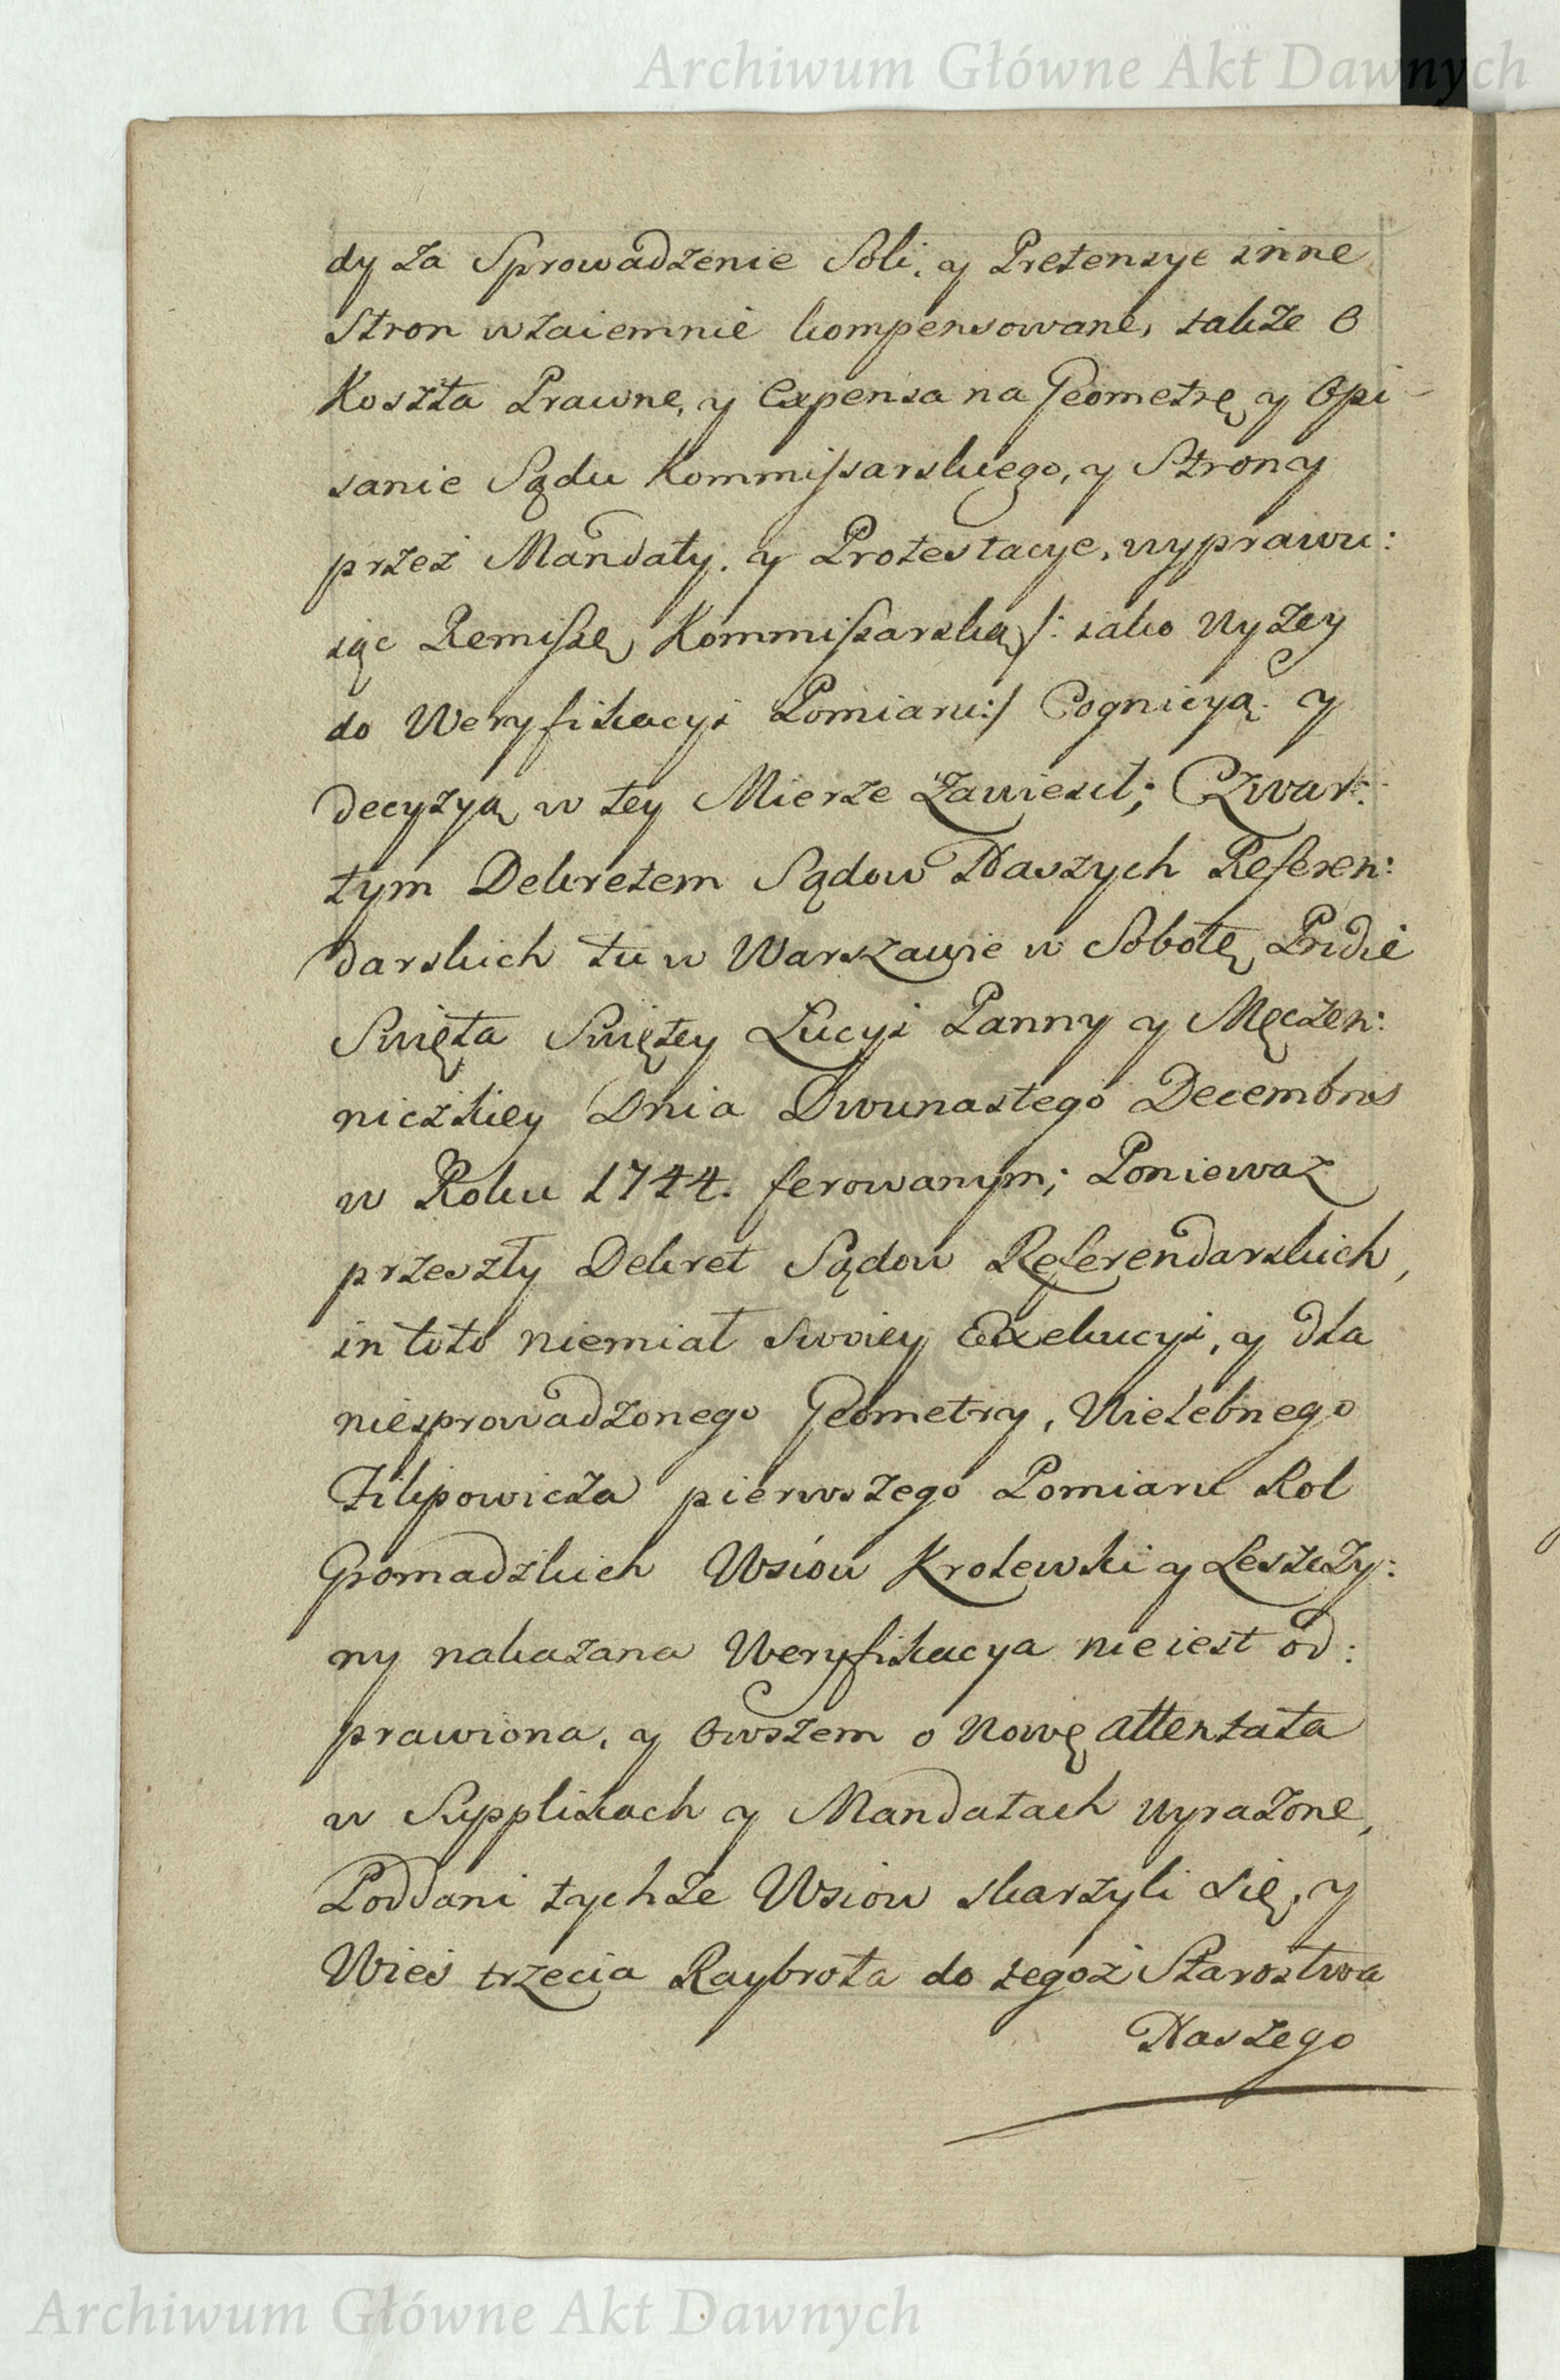 Archiwum Główne Akt Dawnych
dy za Sprowadzenie Soli, y Pretensye inne
Stron wzaiemnie kompensowane, także o
Koszta Prawne, y Expensa na Geometrę y Opi-
sanie Sądu Kommissarskiego, y Strony
przez Mandaty, y Protestacye, wyprawu:
iąc Remissę Kommissarską /: iako wyżey
do Weryfikacyi Pomiaru:/ Cognicyą y
decyzyą w tey Mierze zawiesił; Czwar:
tym Dekretem Sądow Naszych Referen:
darskich tu w Warszawie w Sobotę Pridie
Swięta Swiętey Lucyi Panny y Męczen:
niczkiey Dnia Dwunastego Decembris
w Roku 1744. ferowanym; Poniewaz
przeszły Dekret Sądow Referendarskich,
in toto niemiał swoiey Exekucyi, y dla
niesprowadzonego Geometry, Wielebnego
Filipowicza pierwszego Pomiaru Rol
Gromadzkich Wsiow Krolewki y Leszczy:
ny nakazana Weryfikacya nie iest od:
prawiona, y owszem o nowę attentata
w Supplikach y Mandatach wyrażone,
Poddani tychże Wsiow skarżyli się, y
Wies trzecia Raybrota do tegoż Starostwa
Naszego
Archiwum Główne Akt Dawnych